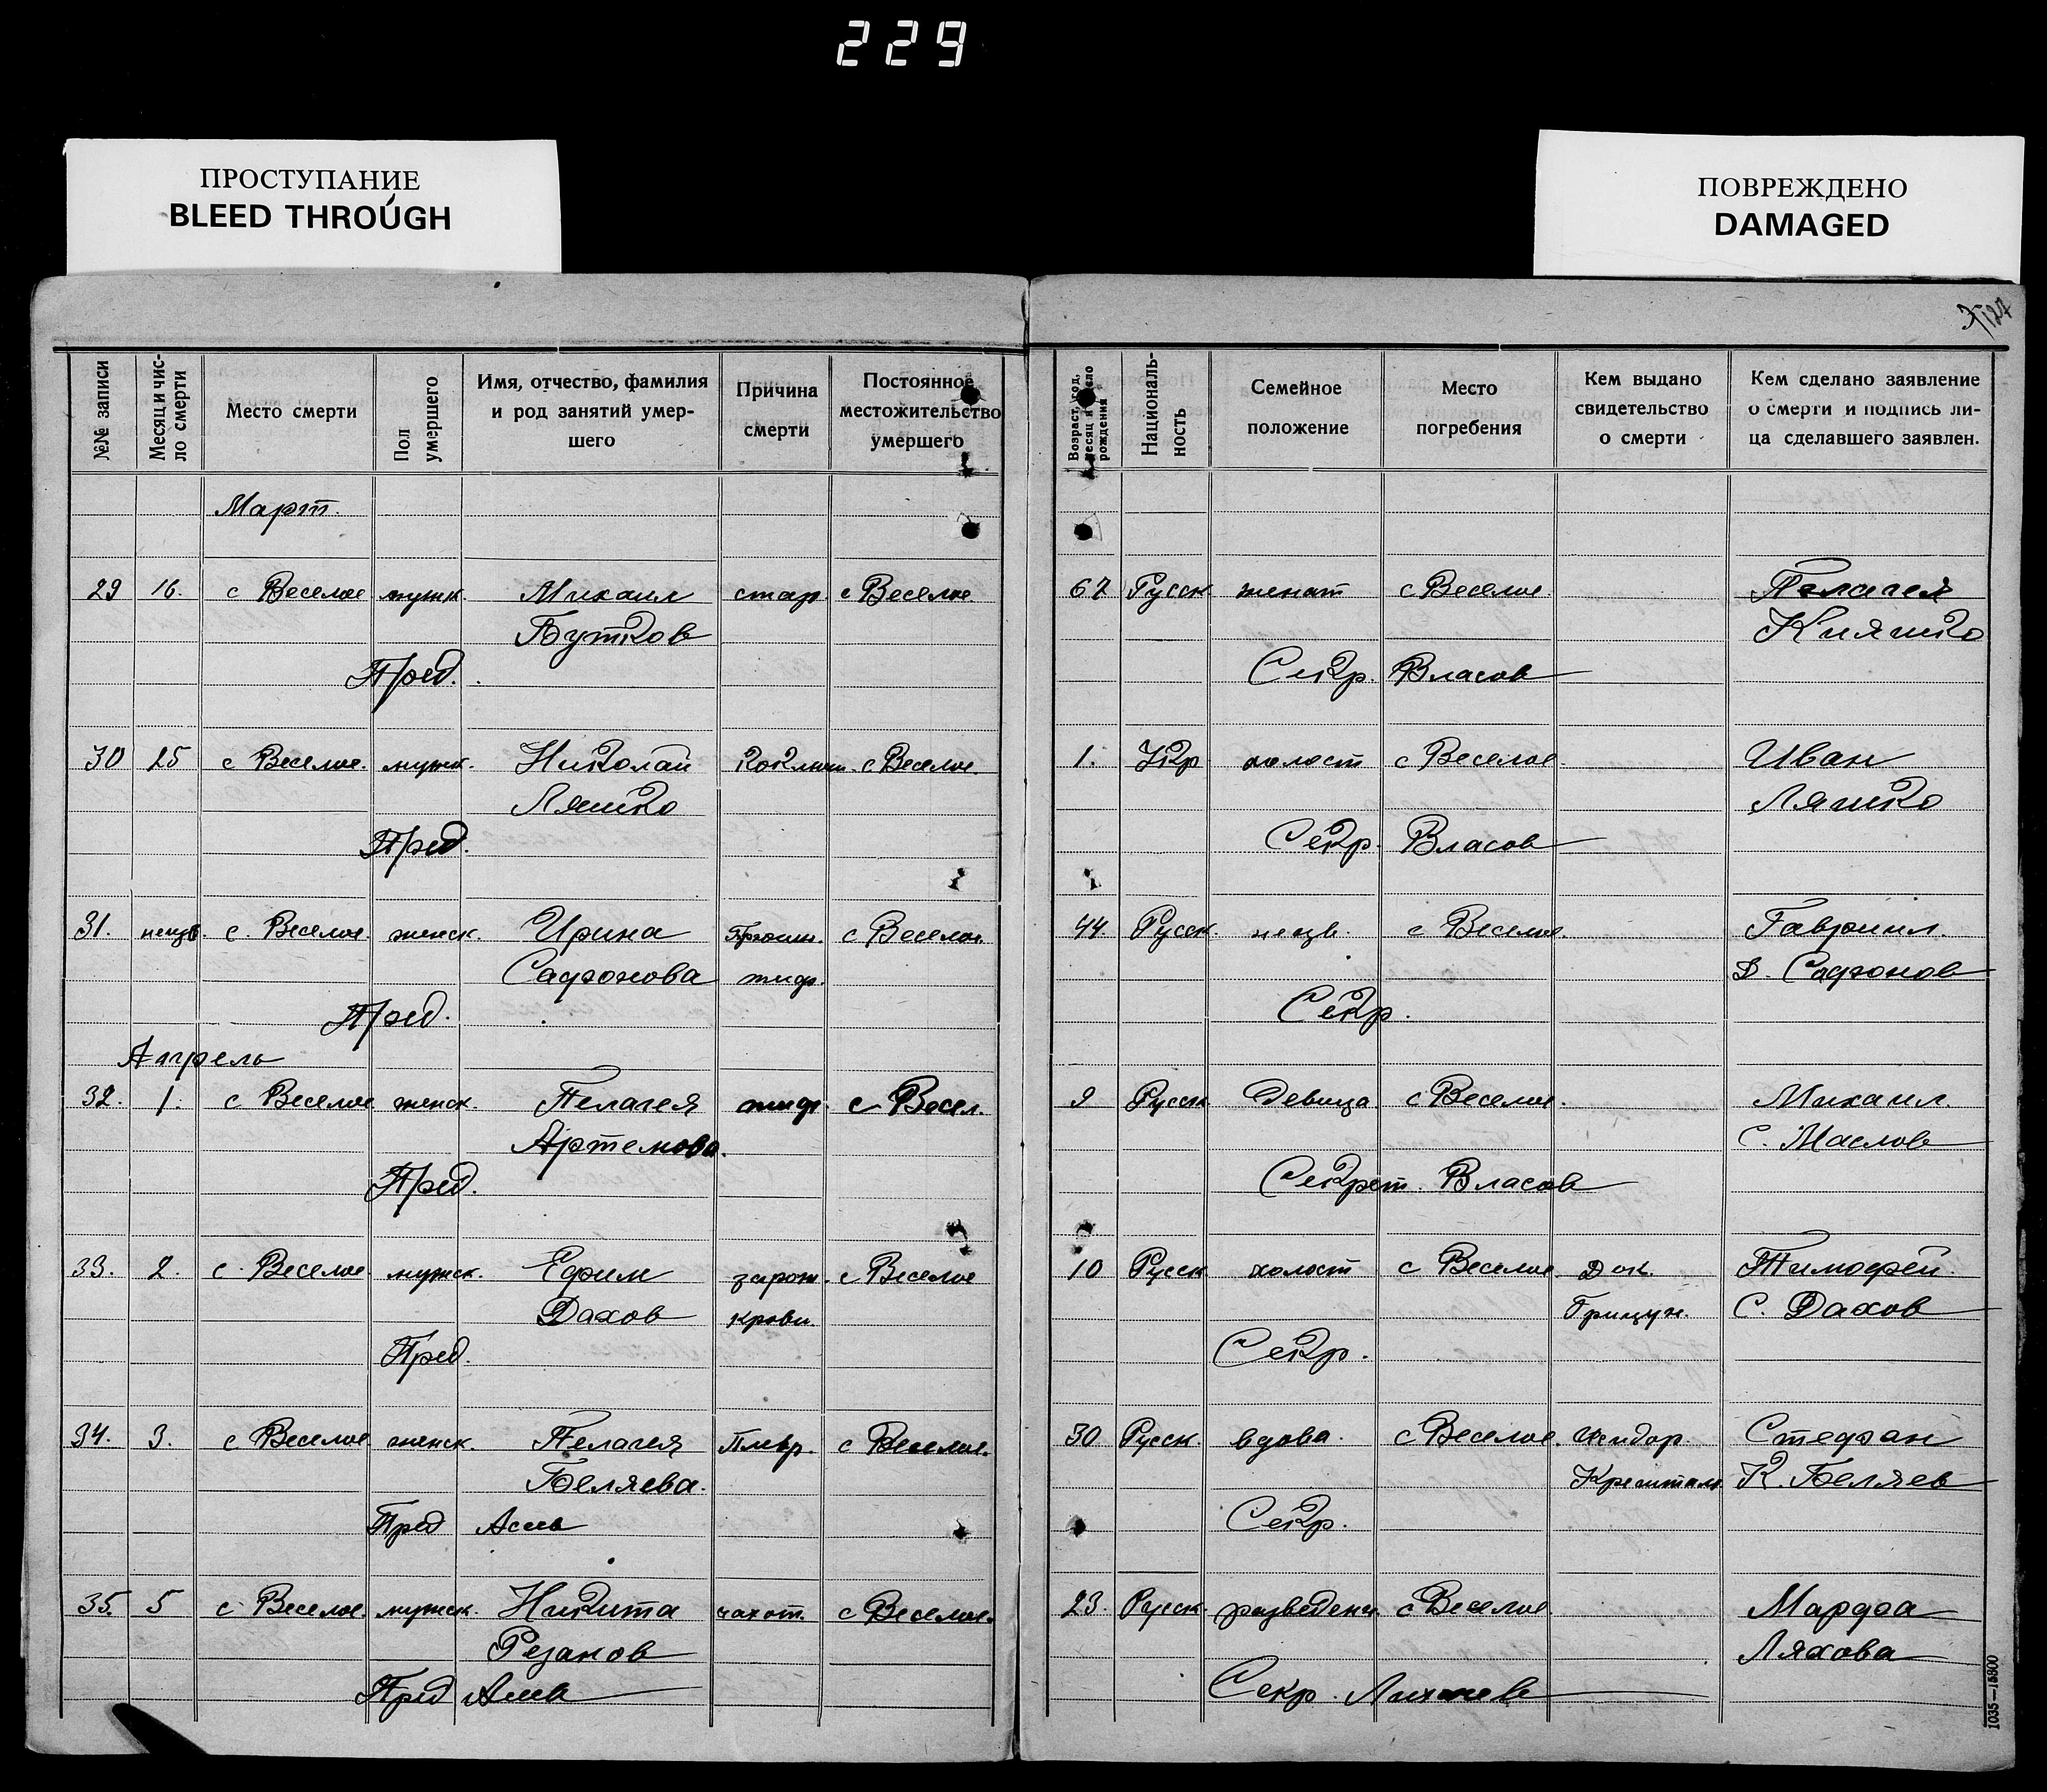 229
ПРОСТУПАНИЕ
BLEED THROUGH
ПОВРЕЖДЕНО
DAMAGED
127
№№ записи
Месяц и чис-
ло смерти
Место смерти
Пол
умершего
Имя, отчество, фамилия
и род занятий умер-
шего
Причина
смерти
Постоянное
местожительство
умершего
Возраст, год,
месяц и число
рождения
Националь-
ность
Семейное
положение
Место
погребения
Кем выдано
свидетельство
о смерти
Кем сделано заявление
о смерти и подпись ли-
ца сделавшего заявлен.
Март.
29 16. с Веселое мужск. Михаил стар. с Веселое. 67 Русск женат с Веселое. Пелагея
Бутков Кияшко
Пред. Секр. Власов
30 25 с Веселое. мужск. Николай коклюш. с Веселое. 1. Укр холост с Веселое. Иван
Ляшко Ляшко
Пред. Секр. Власов
31. неизв. с. Веселое. женск. Ирина Брюшн. с Веселое. 44 Русск. неизв. с Веселое. Гавриил.
Сафонова тиф. Д. Сафонов
Пред. Секр.
Апрель
32. 1. с Веселое женск. Пелагея тиф. с Весел. 9 Русск. Девица с Веселое. Михаил.
Артемова. С. Маслов
Пред. Секрет. Власов
33. 2. с. Веселое. мужск. Ефим зараж. с Веселое 10 Русск. холост с Веселое Док. Тимофей.
Дахов крови. С. Дахов
Пред. Секр.
34. 3. с Веселое женск. Пелагея Плевр. с Веселое. 30 Русск. вдова. с Веселое. Стефан
Беляева. К. Беляев
Пред Секр.
35. 5 с Веселое. мужск. Никита чахот. с Веселое. 23. Русск. разведен. с Веселое Марфа
Резанов Ляхова
Пред Секр.
1035—15800